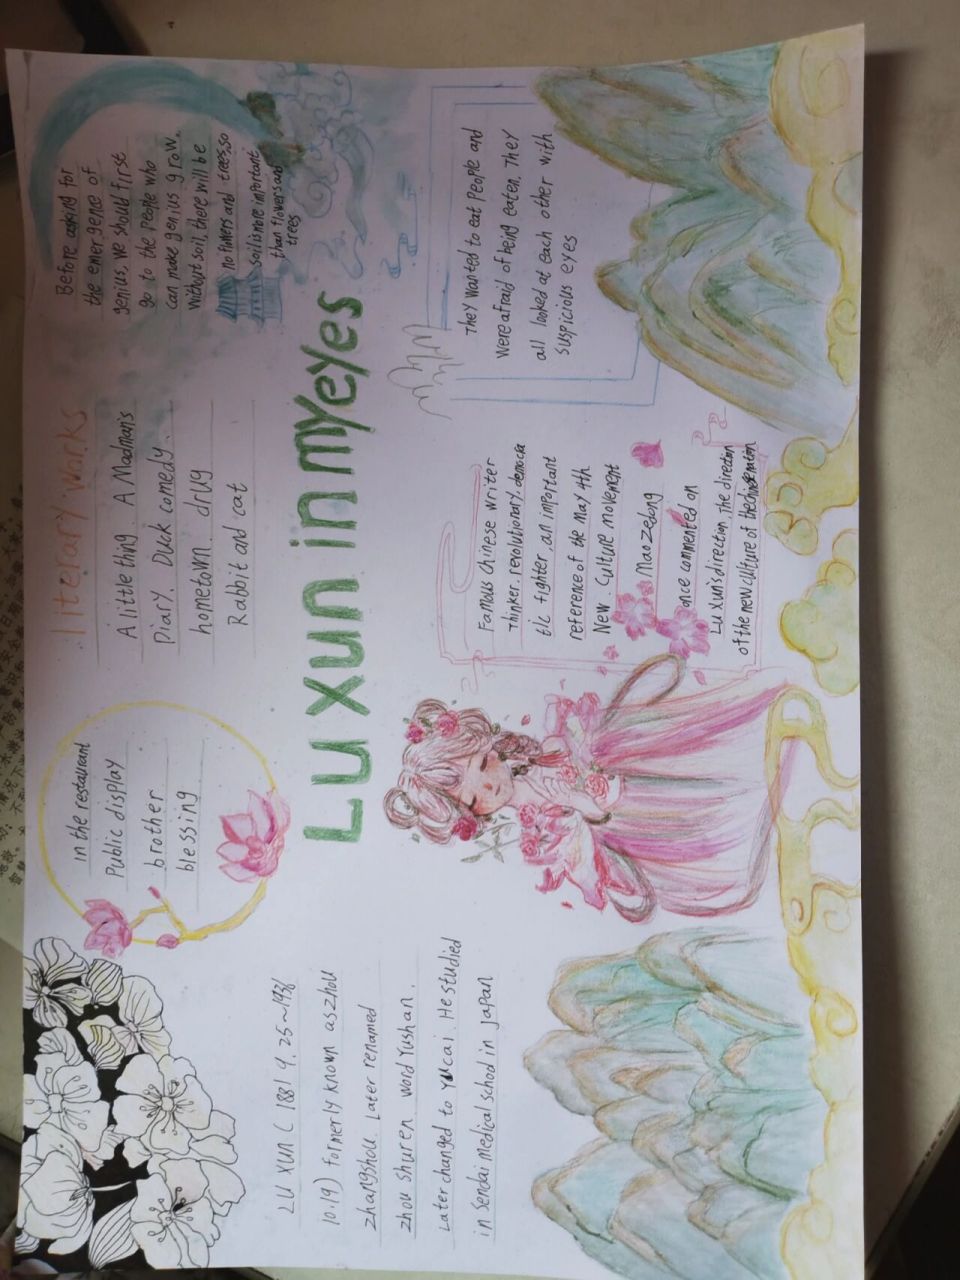 Lu xun in my eyes
Lu xun ( 1881 9.25~1936
10.19) formerly known as zhou
zhangshou. Later renamed
zhou shuren word Yushan.
Later changed to Yucai. He studied
in Sendai medical school in Japan
in the restaurant
Public display
brother
blessing
literary works
A little thing. A Madman's
Diary. Duck comedy.
hometown. drug
Rabbit and cat
Before asking for
the emergence of
genius, we should first
go to the people who
can make genius grow.
without soil, there will be
no flowers and trees, so
soil is more important
than flowers and
trees
Famous Chinese writer
Thinker. revolutionary. democra
tic fighter, an important
reference of the may 4th
New Culture movement
Mao zedong
once commented on
Lu xun's direction, The direction
of the new culture of the
They wanted to eat people and
were afraid of being eaten. They
all looked at each other with
suspicious eyes